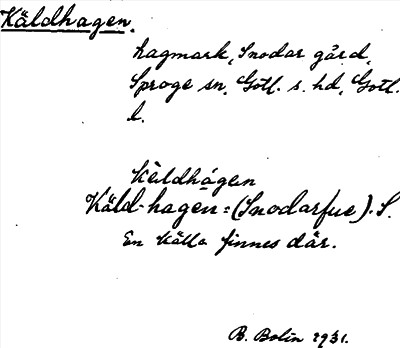 Käldhagen.
hagmark, Snodar gård,
Sproge sn, Gotl. s. hd, Gotl.
l.
Kèldhágen
Käld-hagen = (Snodarfue). S.
En källa finnes där.
B. Bolin 1931.